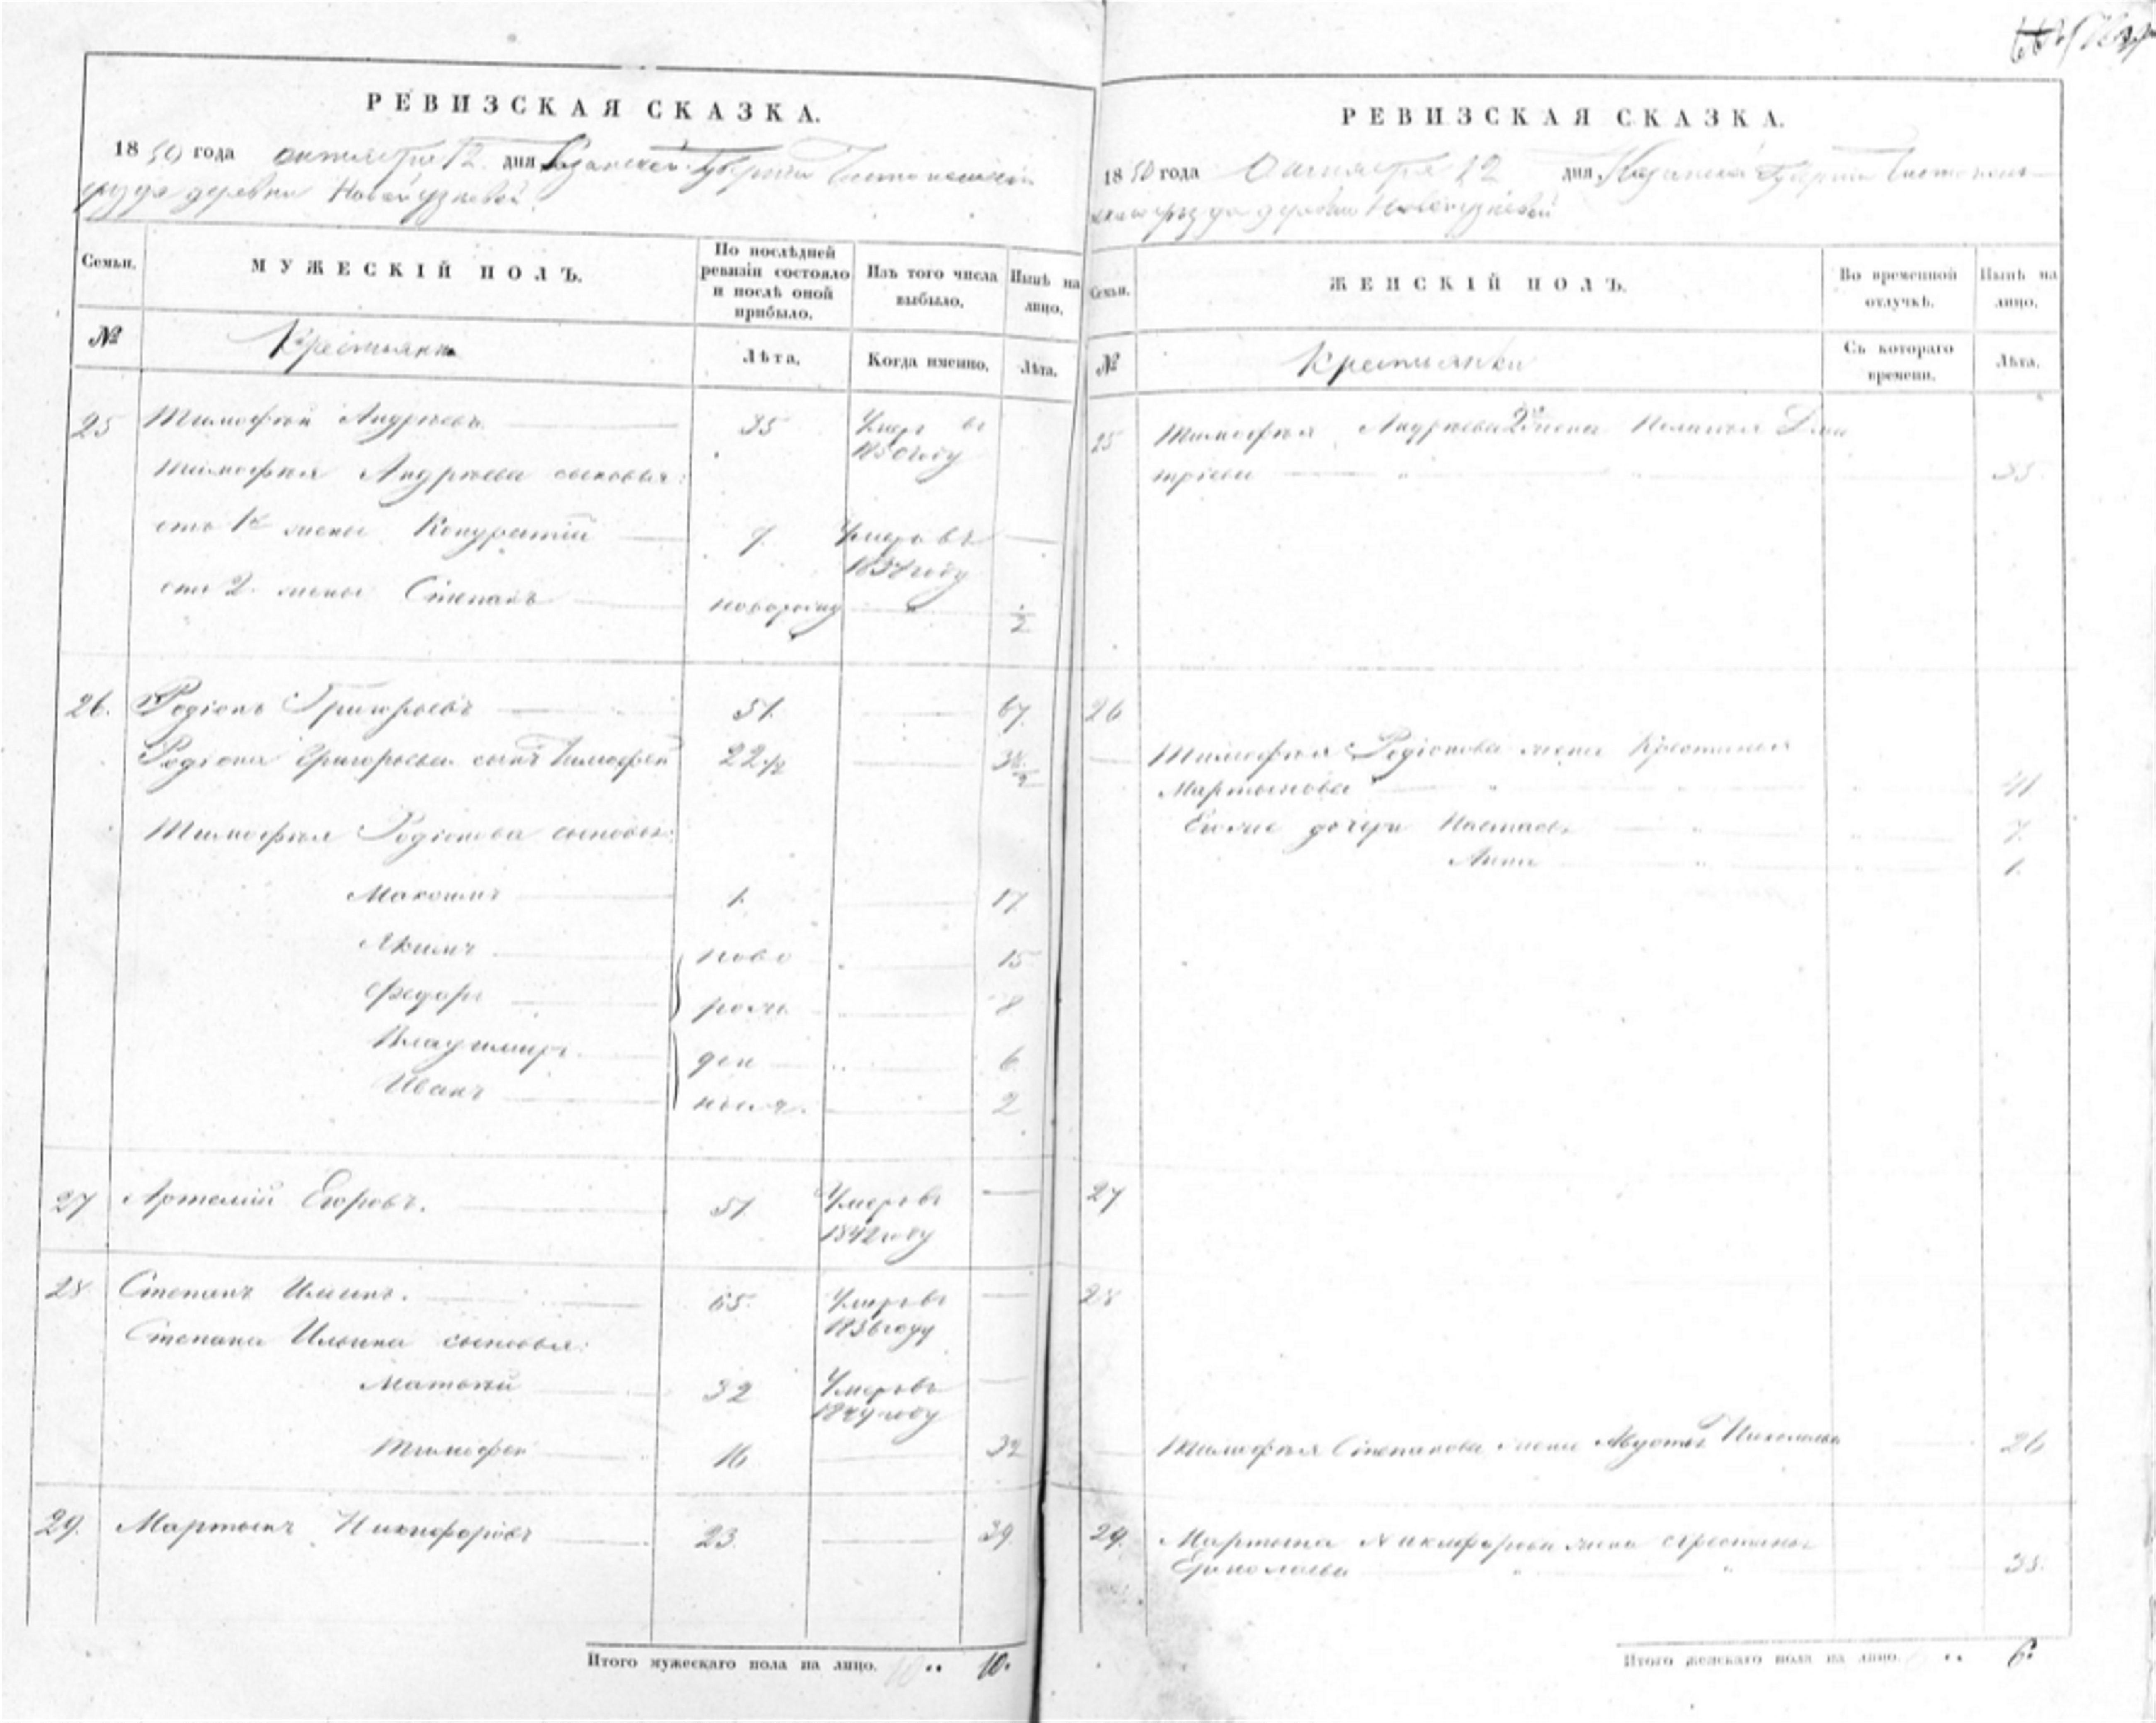 РЕВИЗСКАЯ СКАЗКА.
1850 года октября 12 дня Казанской Губернии Чистопольскаго
уезда деревни Новой
Семьи.
МУЖЕСКІЙ ПОЛЪ.
По послѣдней ревизіи состояло и послѣ оной прибыло.
Изъ того числа выбыло.
Нынѣ на лицо.
№
Крестьяне
Лѣта.
Когда именно.
Лѣта.
25 Тимофей Андреевъ 35 Умер въ
1850 году
Тимофея Андреева сыновья:
отъ 1й жены Кондратій 7. Умеръ въ
отъ 2. жены Степанъ новорожд " ½
26. Родіонъ Григорьевъ 51. 67.
Родіона Григорьева сынъ Тимофей 22½ 38½
Тимофея Родіонова сыновья:
Максимъ 1. 17.
Якимъ ново 15
Федоръ рож 8
Владимиръ ден 6
Иванъ ныя. 2
27 Артемій Егоровъ. 51. Умеръ въ
1842 году
28 Степанъ Ильинъ. 65. Умеръ въ
1836 году
Степана Ильина сыновья:
Матвей 32 Умеръ въ
1849 году
Тимофей 16 32
29. Мартынъ Никифоровъ 23. 39.
Итого мужескаго пола на лицо. 10.
РЕВИЗСКАЯ СКАЗКА.
1850 года Октября 12 дня Казанской Губерніи Чистополь-
скаго уезда деревни Новой
Семьи.
ЖЕНСКІЙ ПОЛЪ.
Во временной отлучкѣ.
Нынѣ на лицо.
№
Крестьянки
Съ котораго времени.
Лѣта.
25 Тимофея Андреева 2я жена Пелагея Дми
тріева " " 35
26
Тимофея Родіонова жена
Мартынова " 41
Его же дочери Настасья " 7.
Анна " 1.
27
28
Тимофея Степанова жена Николаева 26
29. Мартына Никифорова жена
Ермолаева " " 38.
Итого женскаго пола на лицо. 6.